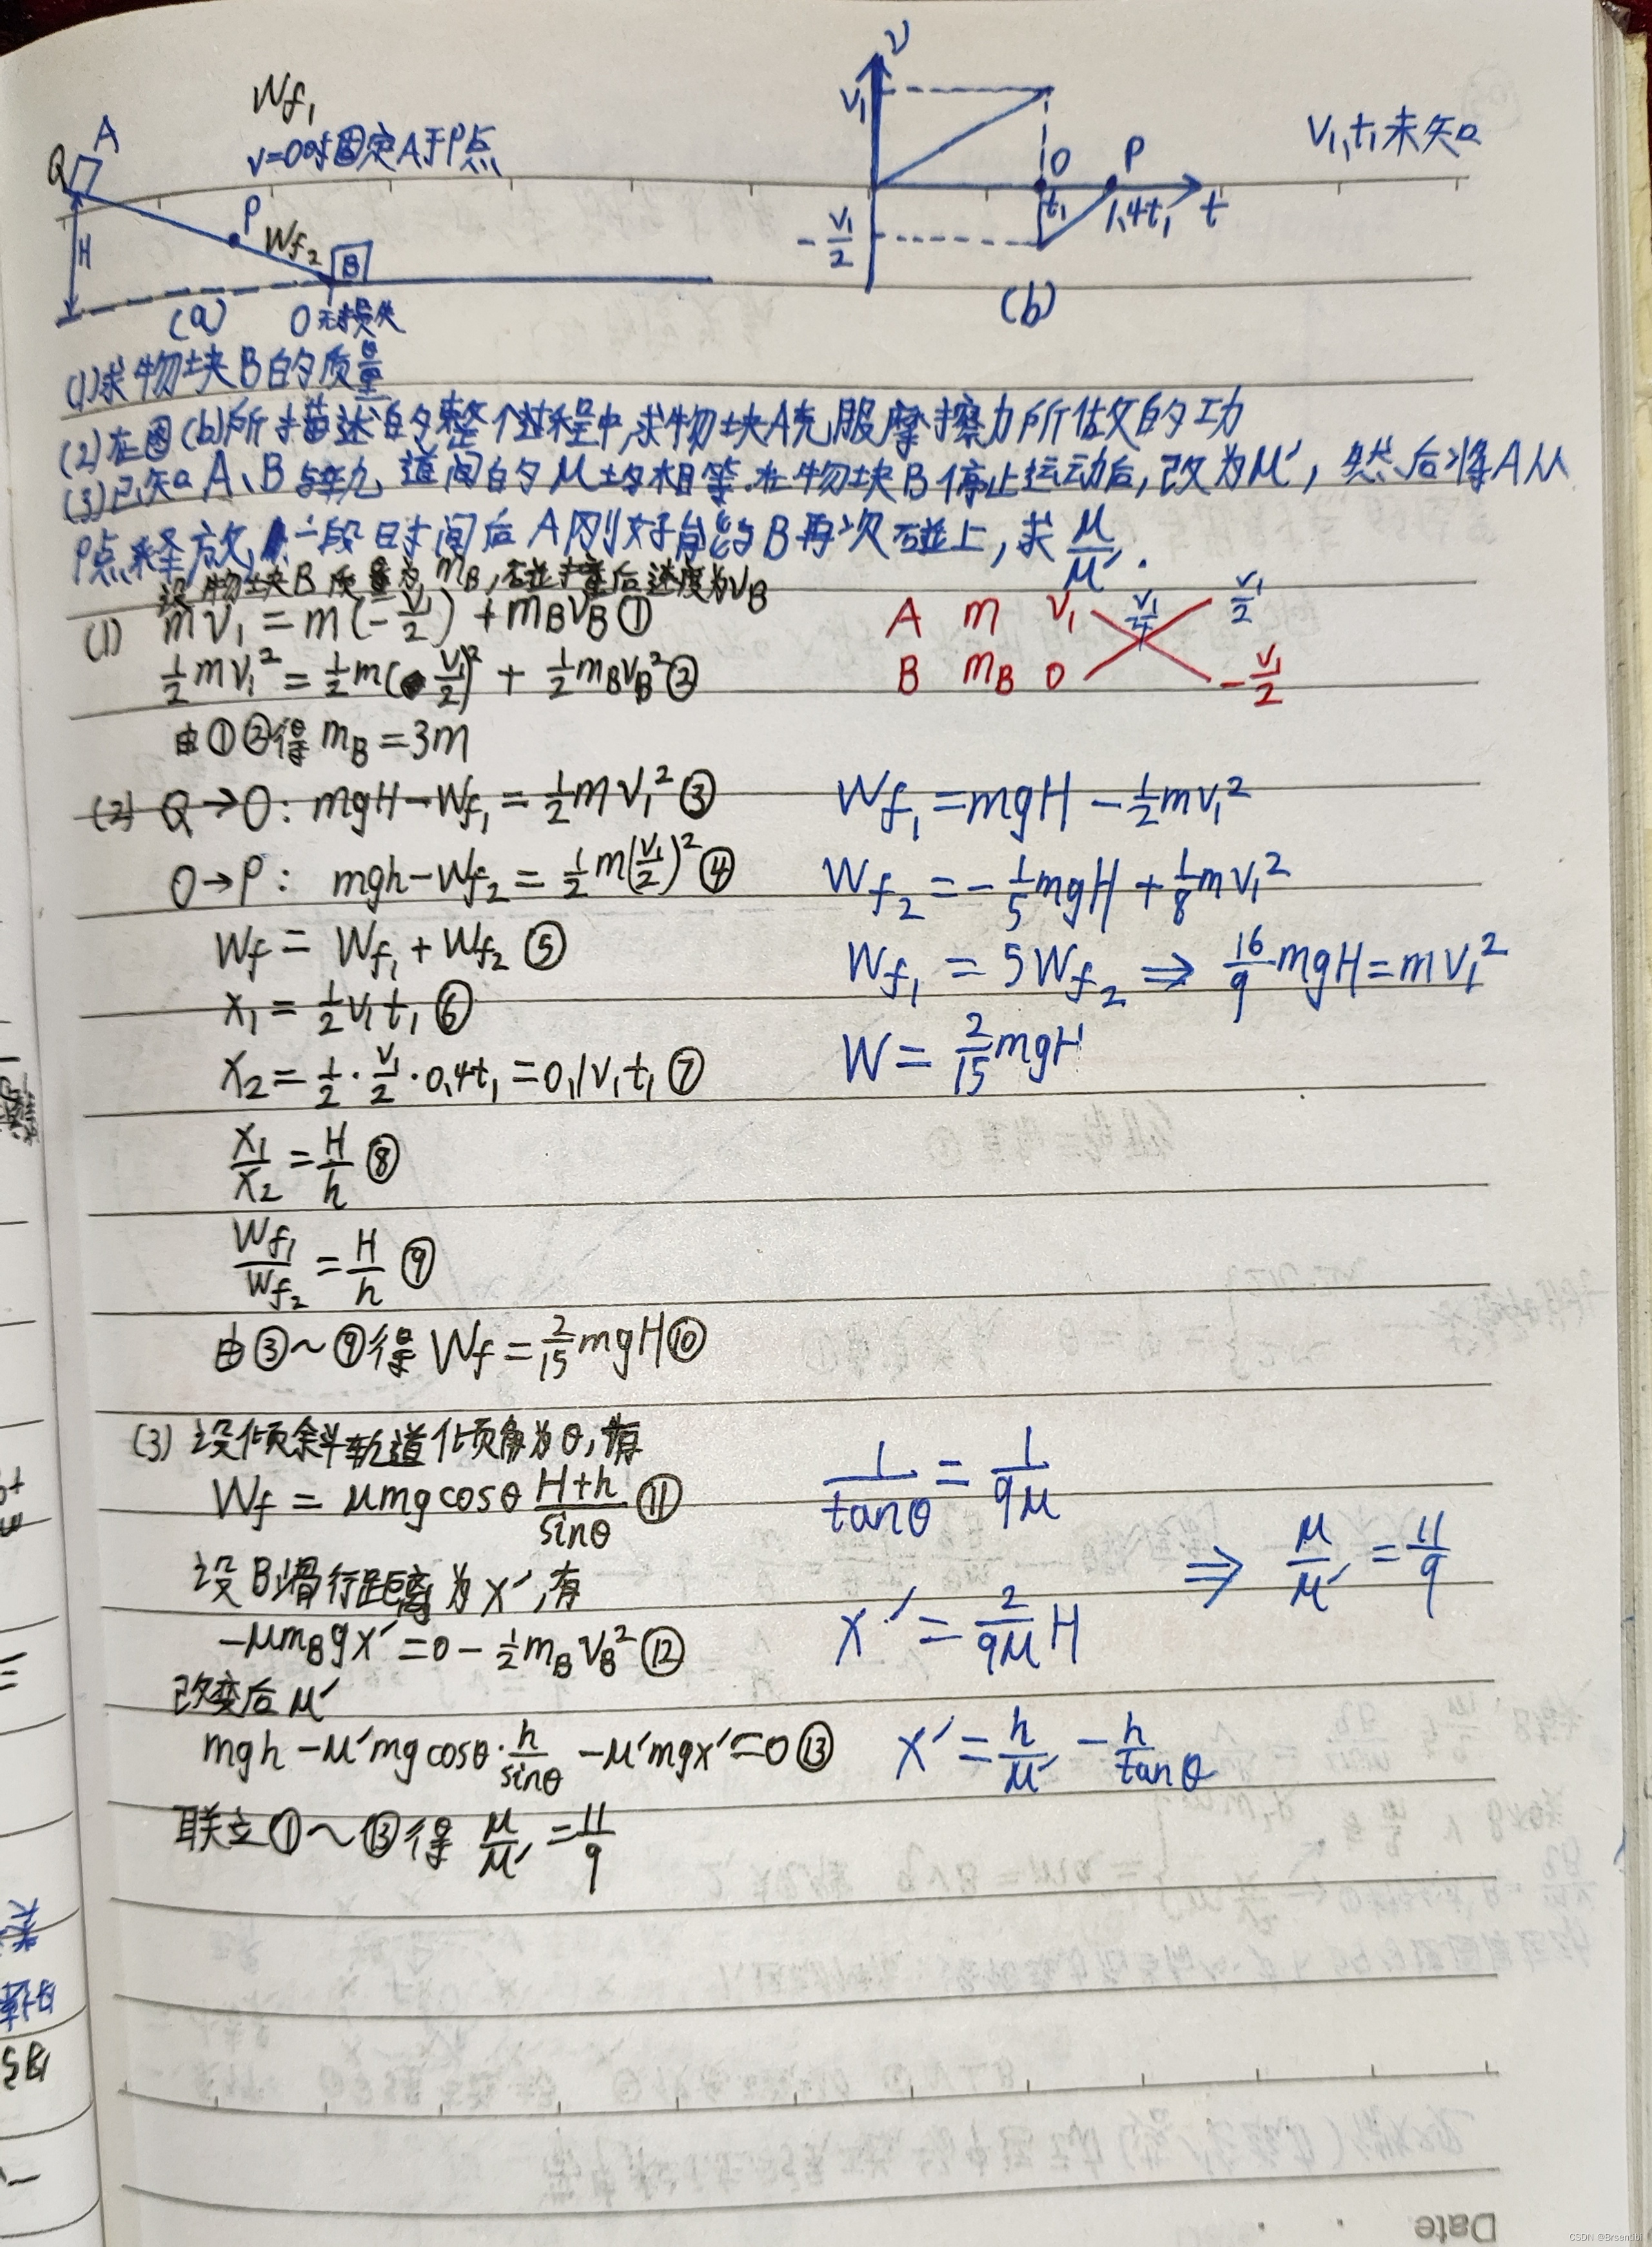 Wf₁
v=0时固定A于P点
Q A
P
Wf₂
B
H
(a)
O无损失
v
v₁
O P
t₁ 1.4t₁ t
-v₁/2
(b)
v₁,t₁未知
(1)求物块B的质量
(2)在图(b)所描述的整个过程中,求物块A克服摩擦力所做的功
(3)已知A、B与轨道间的μ均相等.在物块B停止运动后,改为μ′,然后将A从
P点释放,一段时间后A刚好能与B再次碰上,求μ/μ′.
设物块B质量为m_B,碰撞后速度为v_B
(1) mv₁=m(-v₁/2)+m_Bv_B①
½mv₁²=½m(v₁/2)²+½m_Bv_B²②
由①②得m_B=3m
A m v₁ v₁/4 v₁/2
B m_B 0 -v₁/2
(2) Q→O: mgH-Wf₁=½mv₁²③
O→P: mgh-Wf₂=½m(v₁/2)²④
Wf=Wf₁+Wf₂⑤
x₁=½v₁t₁⑥
x₂=½·v₁/2·0.4t₁=0.1v₁t₁⑦
x₁/x₂=H/h⑧
Wf₁/Wf₂=H/h⑨
由③~⑨得Wf=2/15mgH⑩
Wf₁=mgH-½mv₁²
Wf₂=-1/5mgH+1/8mv₁²
Wf₁=5Wf₂⇒16/9mgH=mv₁²
W=2/15mgH
(3)设倾斜轨道倾角为θ,有
Wf=μmgcosθ(H+h)/sinθ⑪
设B滑行距离为x′,有
-μm_Bgx′=0-½m_Bv_B²⑫
改变后μ′
mgh-μ′mgcosθ·h/sinθ-μ′mgx′=0⑬
联立①~⑬得μ/μ′=11/9
1/tanθ=1/9μ
x′=2/9μH
⇒μ/μ′=11/9
x′=h/μ′-h/tanθ
Date
CSDN @Brsentibi